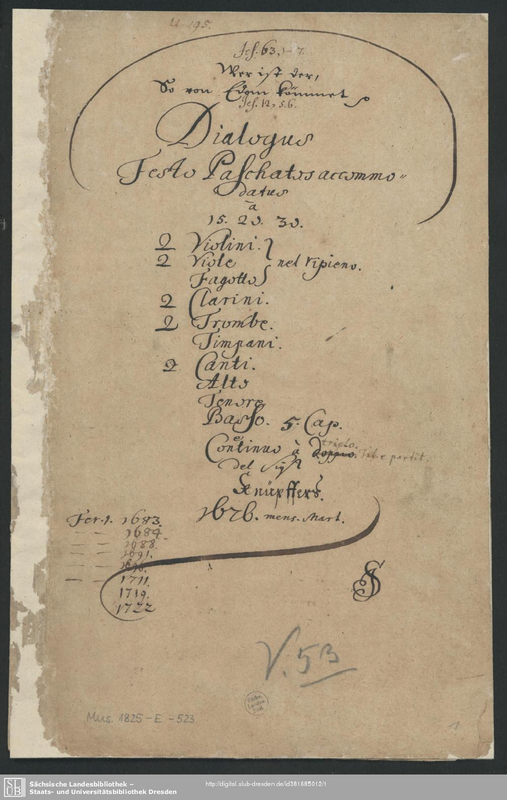 U. 195.
Jes. 63, 1-7.
Wer ist der,
So von Edom kömmet
Jes. 12, 5. 6.
Dialogus
Festo Paschatos accommo=
datus
à
15. 20. 30.
2 Violini.
2 Viole nel ripieno.
Fagotto
2 Clarini.
2 Trombe.
Timpani.
2 Canti.
Alto
Tenore
Basso. 5. Cap.
et
Continuo à doppio. triplo.
del Sig.
Knüpffers.
Fer. 1. 1683. 1676. mens. Mart.
— — 1684.
— — 1688.
— — 1691.
— — 1696.
— — 1711.
1719.
1722
V. 53
Mus. 1825-E-523
1
SLUB
Sächsische Landesbibliothek –
Staats- und Universitätsbibliothek Dresden
http://digital.slub-dresden.de/id381685012/1